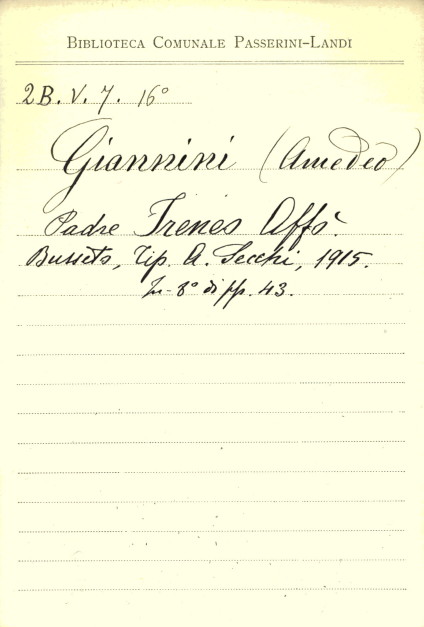 BIBLIOTECA COMUNALE PASSERINI-LANDI
2B. V. 7. 16°
Giannini (Amedeo)
Padre Ireneo Affò.
Busseto, Tip. A. Secchi, 1915.
In-8° di pp. 43.